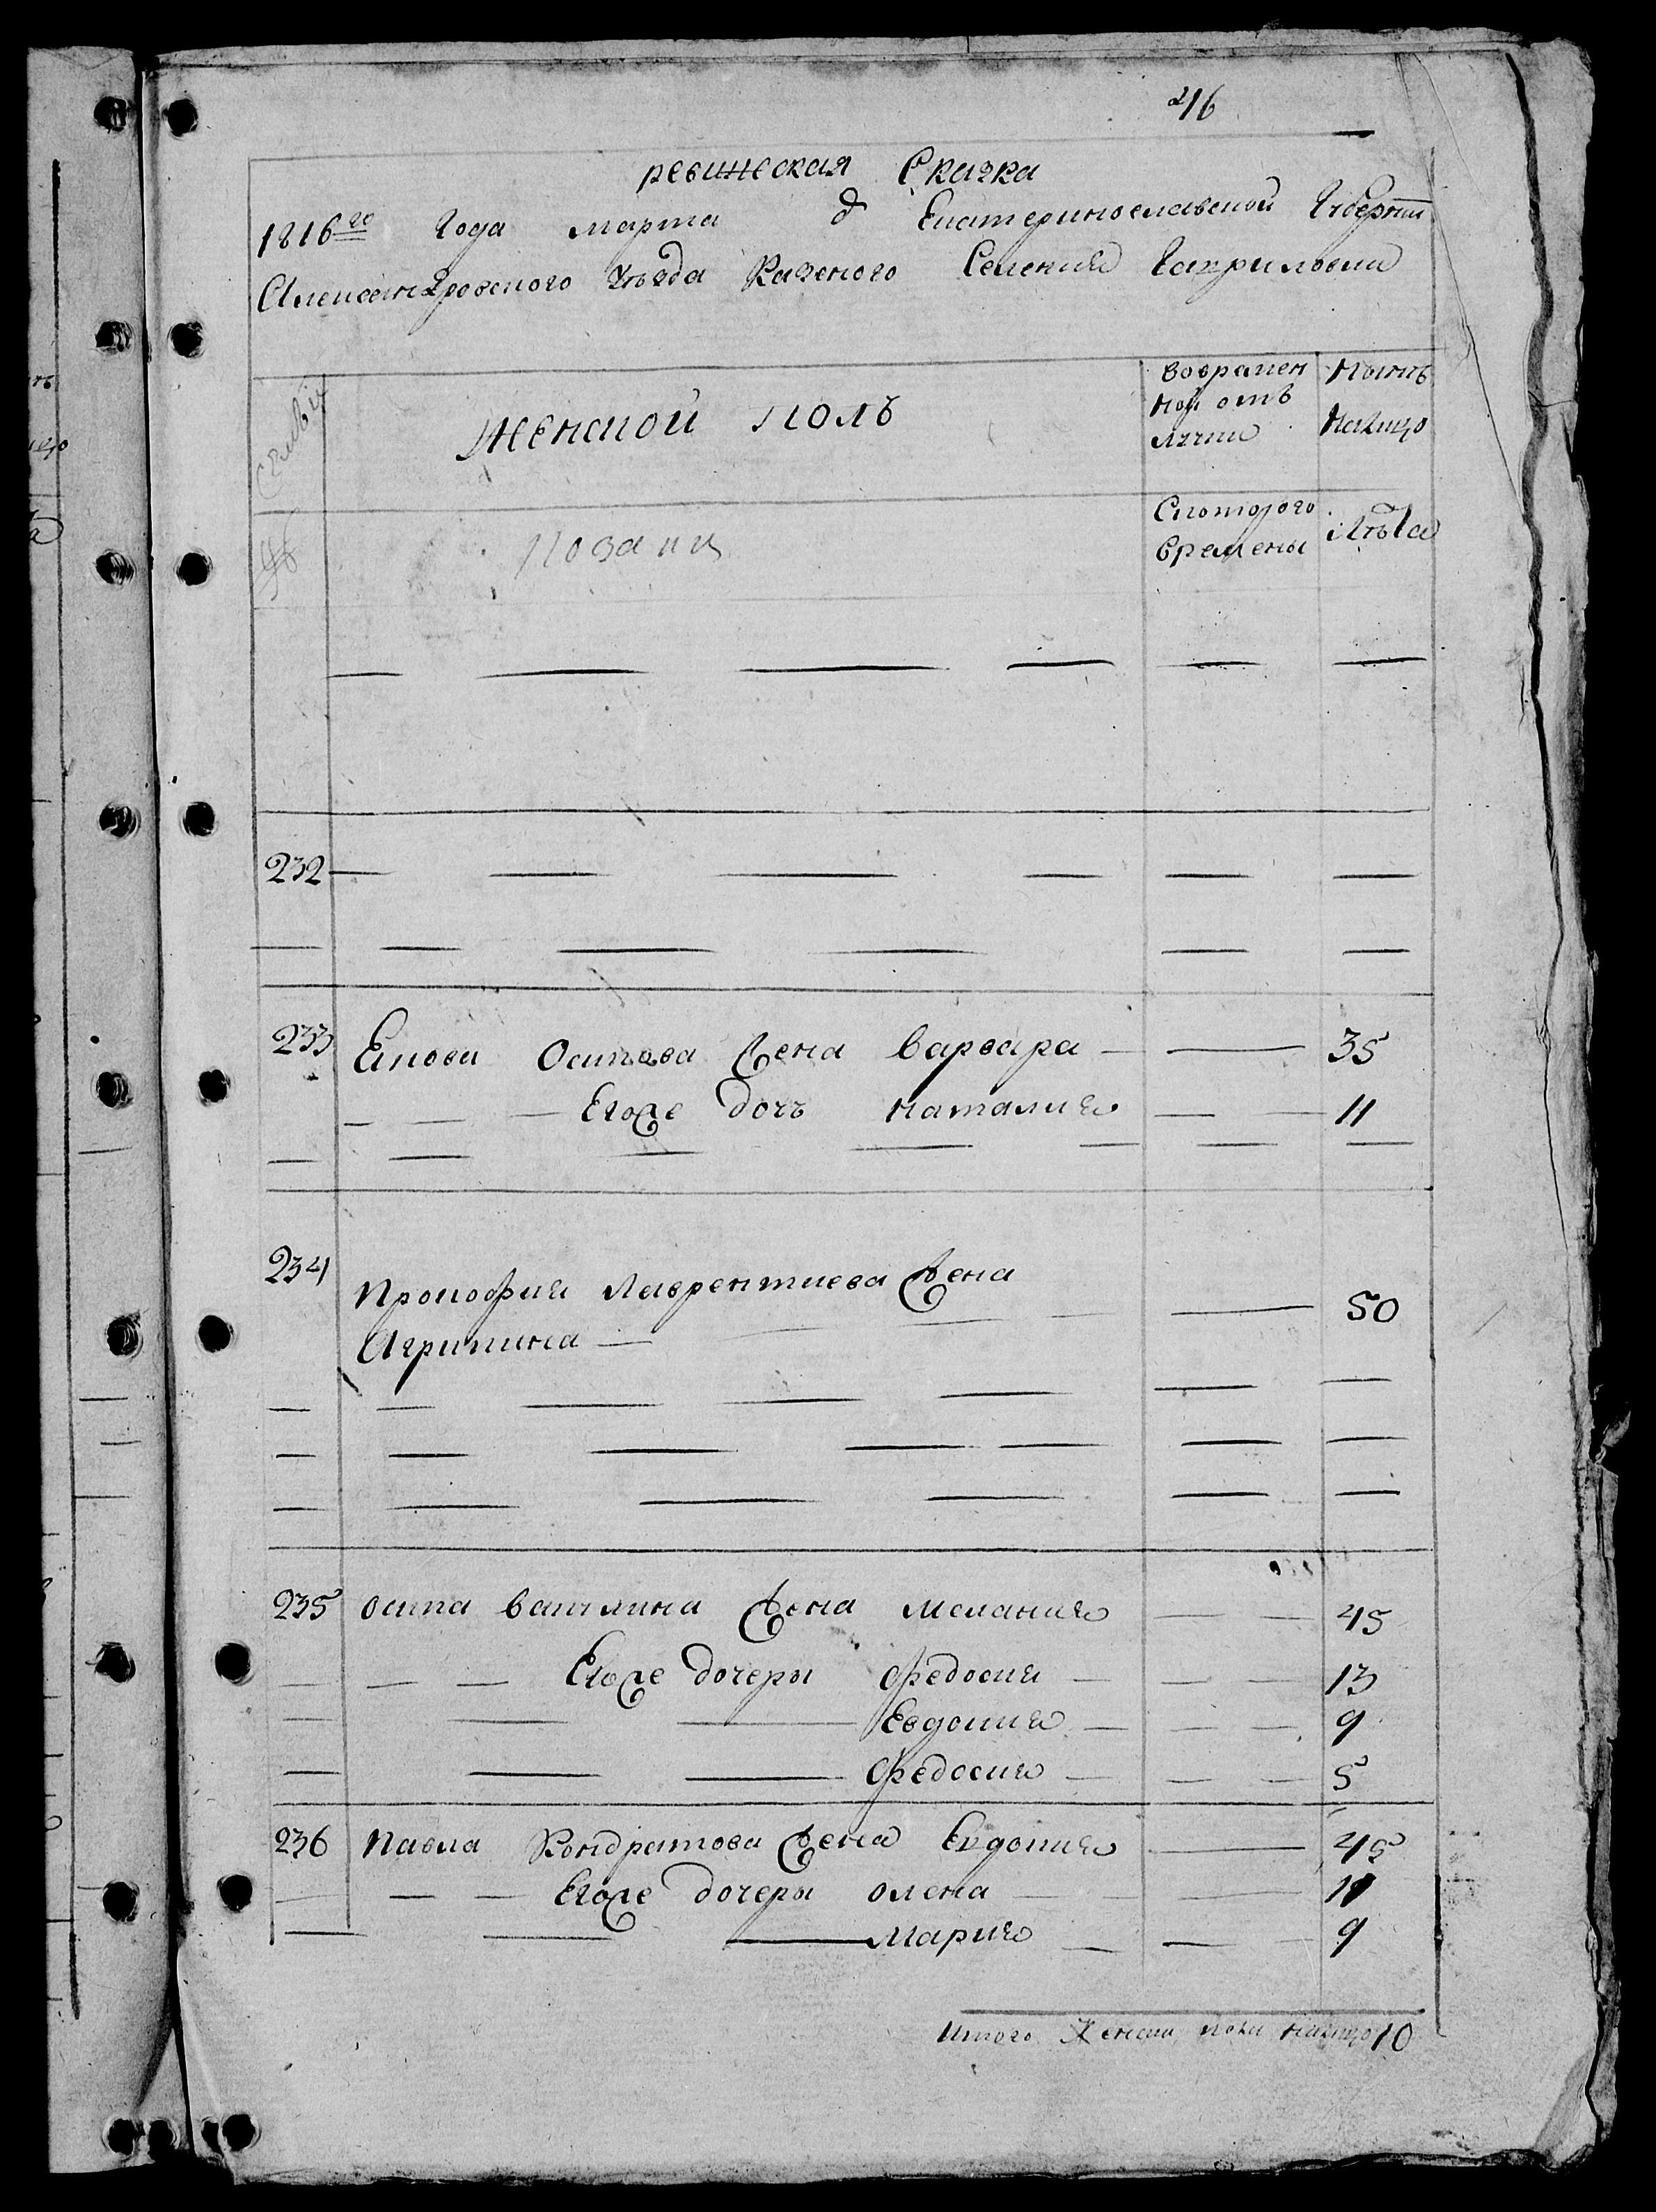 216
ревижская Сказка
1816го Года марта д Екатеринославской Губернии
Александровского уѣзда Казеного Селения Гавриловки
Семьи
Женской полъ
вовремен
ной отъ
лучки
Нынѣ
налицо
№
Козаки
Скоторого
времены
Лѣта
232
233 Якова Осипова жена варвара 35
Егоже дочъ наталия 11
234 Прокофия Лаврентиева жена
Агрипина 50
235 осипа вакулина жена мелания 45
Егоже дочеры Федосия 13
Евдокия 9
Федосия 5
236 павла Кондратова жена Евдокия 45
Егоже дочеры олена 11
Мария 9
Итого Женска пола налицо 10